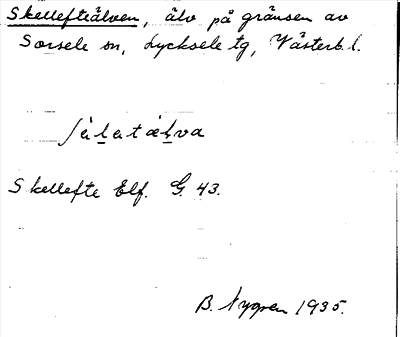 Skellefteälven, älv på gränsen av
Sorsele sn, Lycksele tg, Västerb. l.
ʃàl̲atæl̲va
Skellefte Elf. G. 43.
B. Nygren 1935.